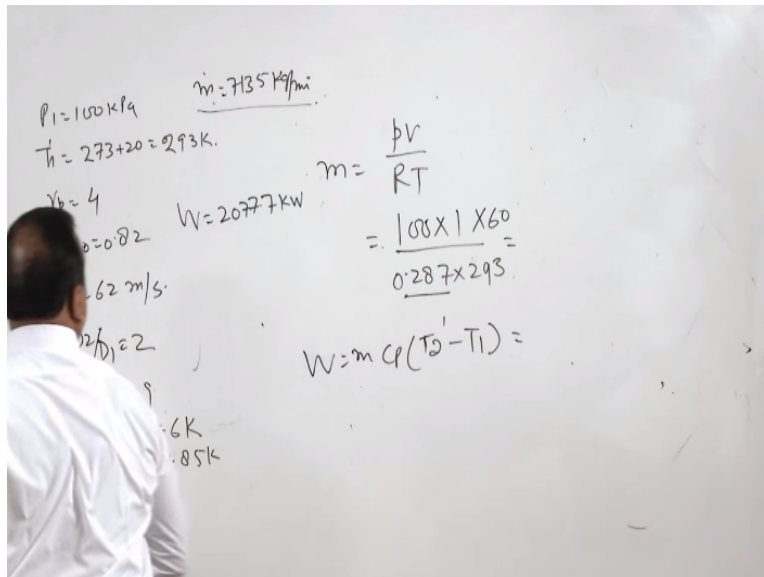 P1=100kPa
ṁ=7135kg/mi
T1=273+20=293K.
=4
=0.82
W=20777KW
62 m/s.
/D1=2
6K
.85K
m= pv
RT
= 100X1X60 =
0.287x293
W=m Cp(T2'-T1)=